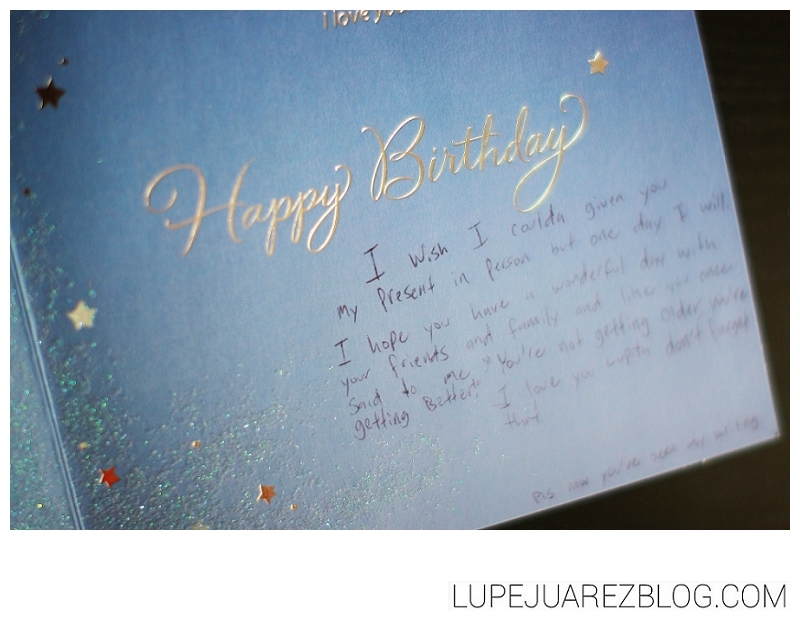 i love you
Happy Birthday
I wish I coulda given you
my present in person but one day I will,
I hope you have a wonderful day with
your friends and family and like you once
said to me "You're not getting older you're
getting Better!" I love you Lupita don't forget
that
P.S. now you've seen my writing
LUPEJUAREZBLOG.COM